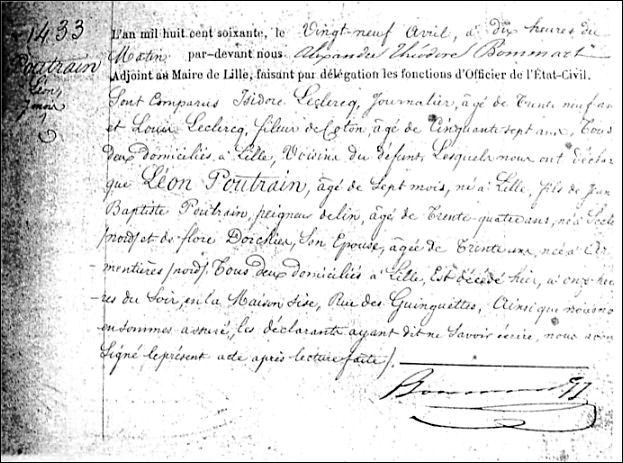 1433
Poutrain
Léon
7 mois
L'an mil huit cent soixante, le Vingt-neuf Avril, à Dix heures du
Matin par-devant nous Alexandre Théodore Bommart
Adjoint au Maire de Lille, faisant par délégation les fonctions d'Officier de l'État-Civil.
Sont Comparus Isidore Leclercq, Journalier, âgé de Trente neuf ans
et Louis Leclercq, fileur de Coton, âgé de Cinquante sept ans, Tous
deux domiciliés à Lille, Voisins du défunt, Lesquels nous ont déclaré
que Léon Poutrain, âgé de Sept mois, né à Lille, fils de Jean
Baptiste Poutrain, peigneur de lin, âgé de Trente-quatre ans, né à
(nord) et de flore Dorchies, Son Epouse, âgée de Trente ans, née à Ar-
-mentières (nord). Tous deux domiciliés à Lille, Est décédé hier, à onze heu-
-res du Soir, en la Maison sise, Rue des Guinguettes, Ainsi que nous nous
en sommes assuré, les déclarants ayant dit ne Savoir écrire, nous avons
Signé le présent acte après lecture faite).
Bommart